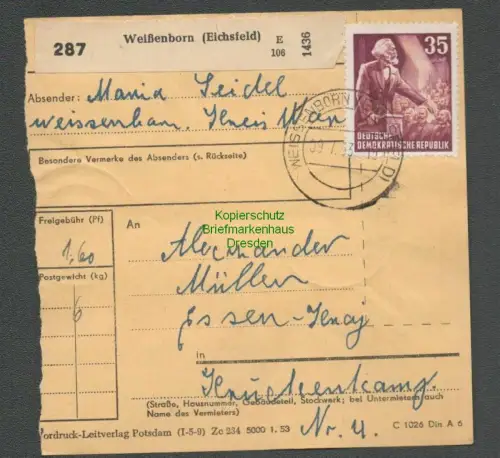 287
Weißenborn (Eichsfeld)
E
106
1436
35
DEUTSCHE
DEMOKRATISCHE REPUBLIK
Absender: Maria Seidel
Besondere Vermerke des Absenders (s. Rückseite)
Kopierschutz
Briefmarkenhaus
Dresden
Freigebühr (Pf)
1,60
Postgewicht (kg)
6
An
Alexander
Müller
Essen-
in
(Straße, Hausnummer, Gebäudeteil, Stockwerk; bei Untermietern auch
Name des Vermieters)
Nr. 4.
Vordruck-Leitverlag Potsdam (I-5-9) Zc 234 5000 1.53
C 1026 Din A 6